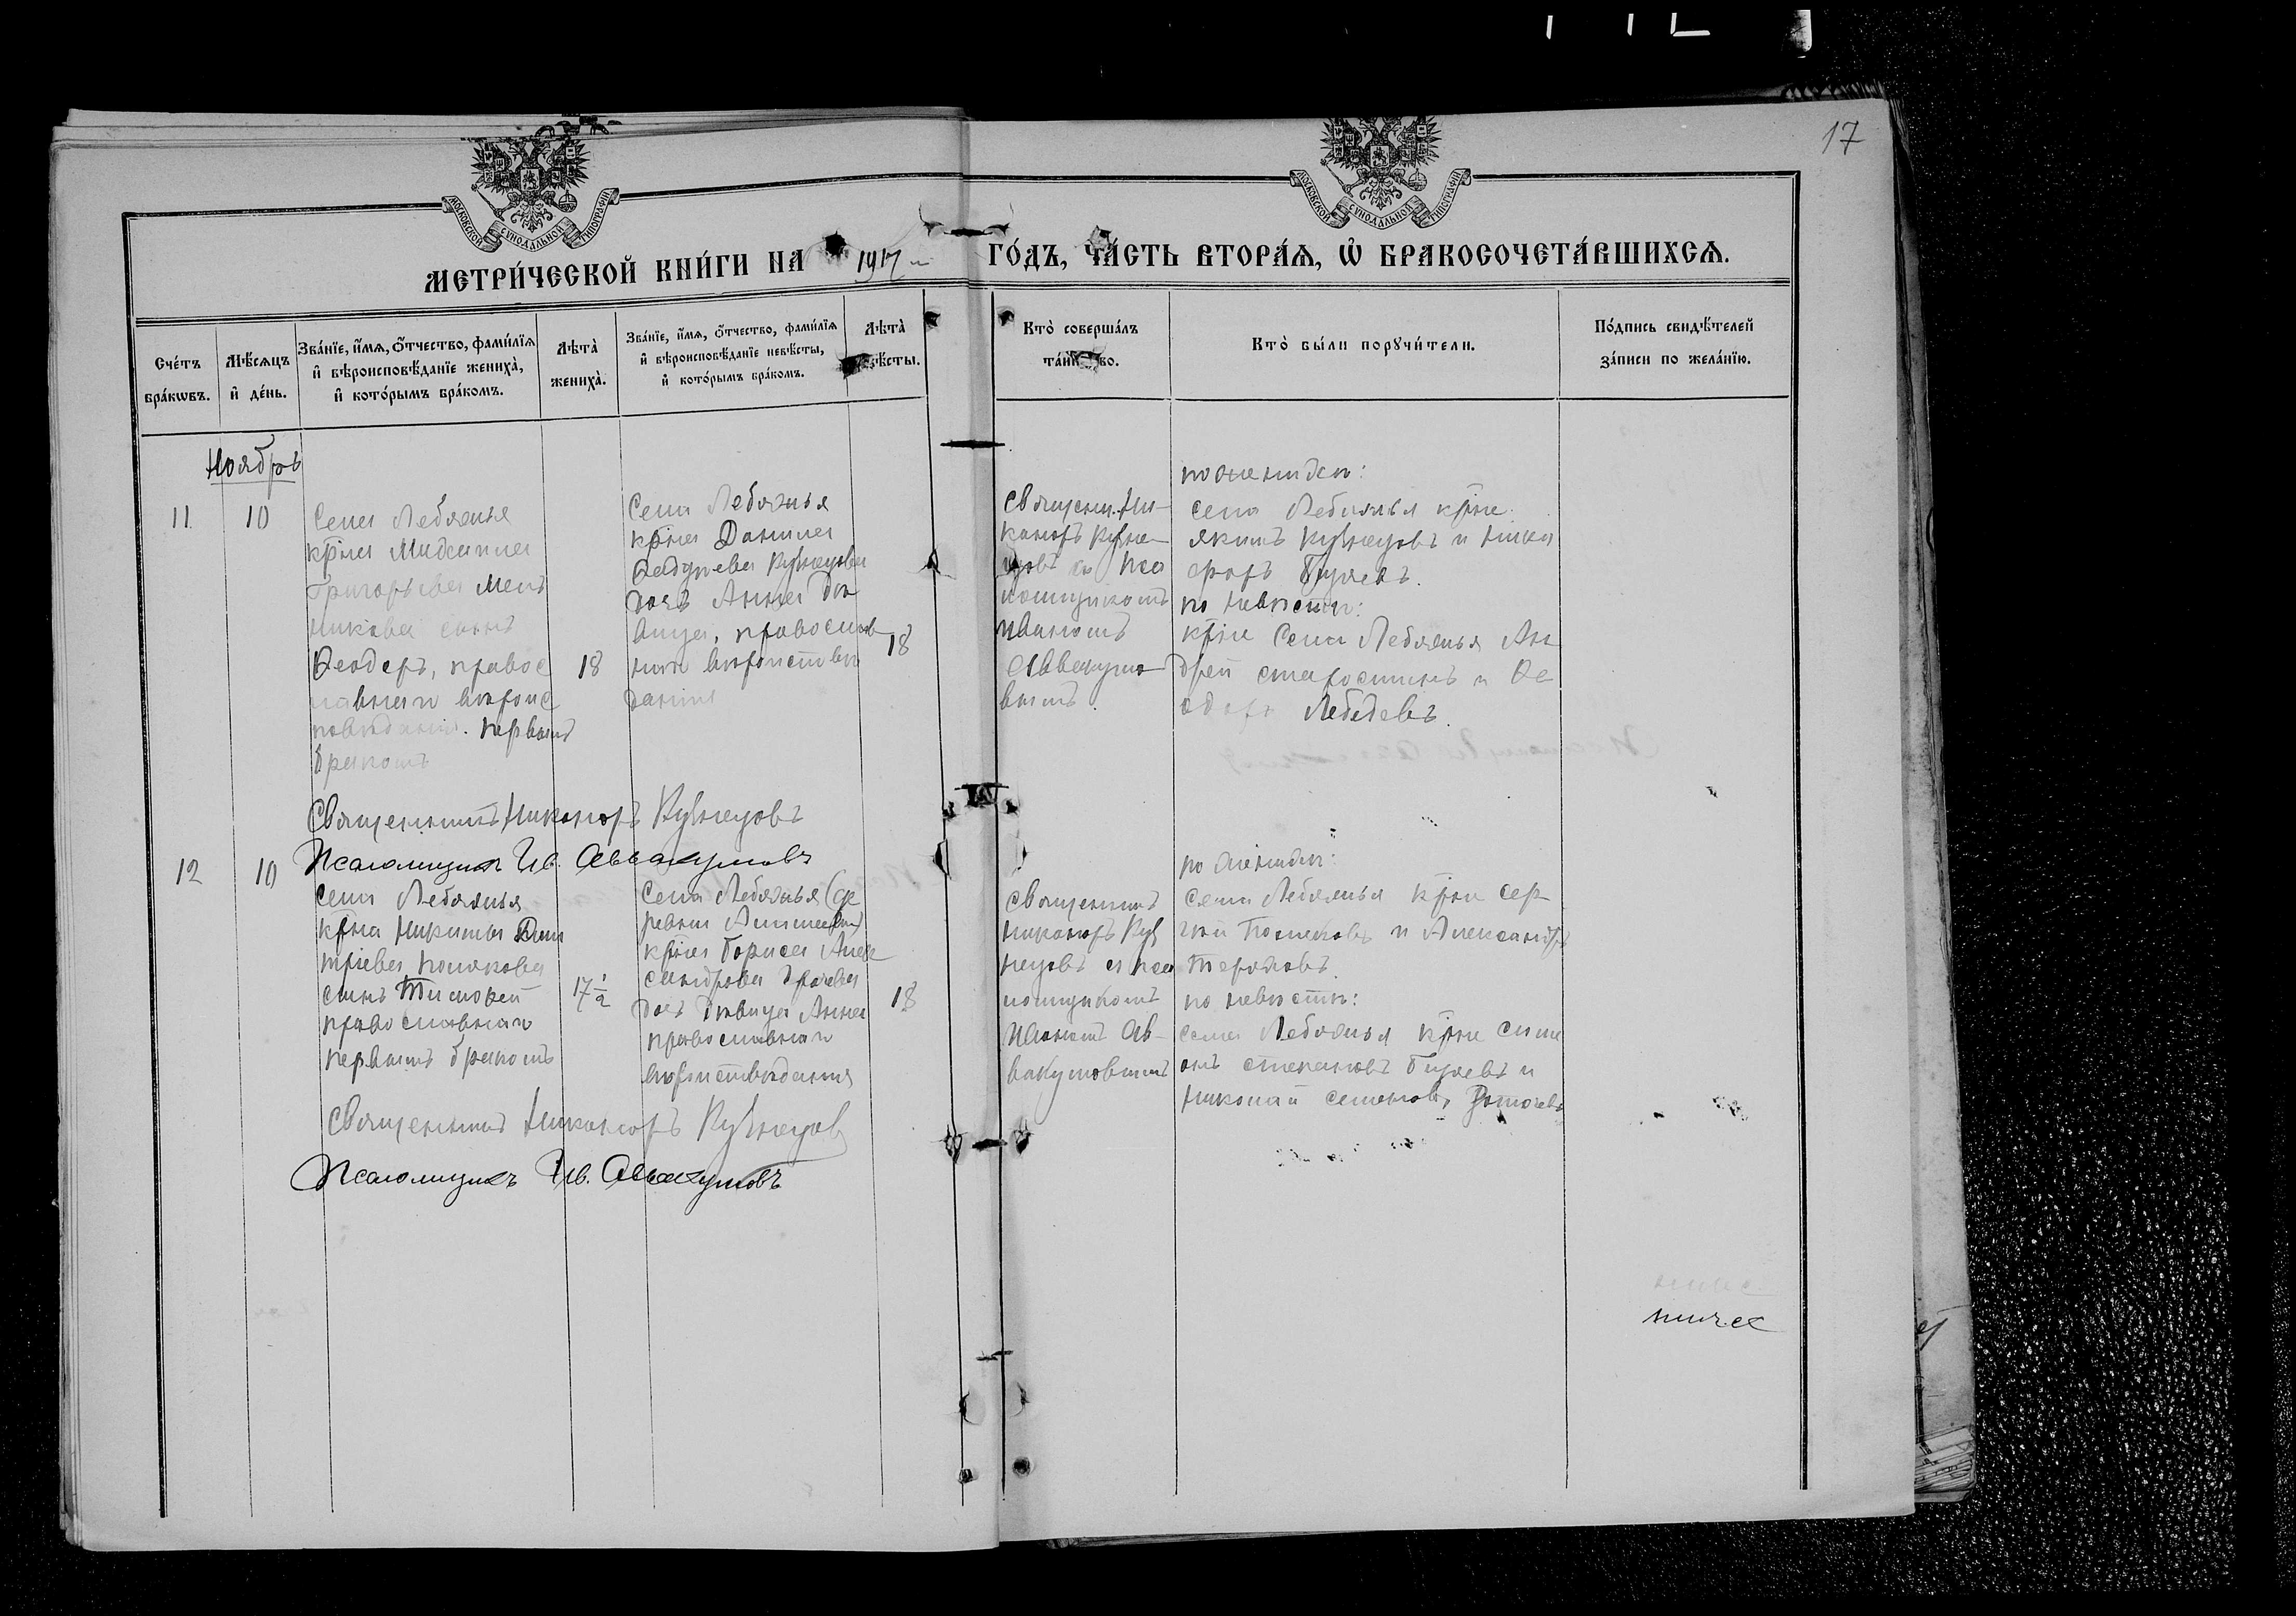 17
МОСКОВСКОЙ СѴНОДАЛЬНОЙ ТИПОГРАФІИ
МОСКОВСКОЙ СѴНОДАЛЬНОЙ ТИПОГРАФІИ
МЕТРИ́ЧЕСКОЙ КНИ́ГИ НА 1917 ГО́ДЪ, ЧА́СТЬ ВТОРА́Ѧ, Ѡ҆ БРАКОСОЧЕТА́ВШИХСѦ.
Сче́тъ бра́кѡвъ.
Мѣ́сяцъ и҆ де́нь.
Зва́нїе, и҆́мѧ, ѻ҆́тчество, фами́лїѧ и҆ вѣроисповѣ́данїе жениха̀, и҆ кото́рымъ бра́комъ.
Лѣта̀ жениха̀.
Зва́нїе, и҆́мѧ, ѻ҆́тчество, фами́лїѧ и҆ вѣроисповѣ́данїе невѣ́сты, и҆ кото́рымъ бра́комъ.
Лѣта̀ вѣ́сты.
Кто̀ соверша́лъ
Кто̀ бы́ли порꙋчи́тели.
По́дпись свидѣ́телей за́писи по жела́нїю.
Ноябрь
11
10
Села Лебяжья
кр̃на Михаила
Григорьева Мель
никова сынъ
Ѳеодоръ, правос
лавнаго вѣроис
повѣданія. первымъ
бракомъ
18
Села Лебяжья
кр̃на Даніила
Кузнецова
дочь Анна дѣ
вица, православ
наго вѣроисповѣ
данія
18
Священн. Ни-
каноръ Кузне-
цовъ съ Пса
ломщикомъ
Иваномъ
Аввакумо-
вымъ.
по женихѣ:
села Лебяжья кр̃не
Якимъ Кузнецовъ и Ника
норъ
по невѣстѣ:
кр̃не Села Лебяжья Ан
дрей Старостинъ и Ѳе
одоръ Лебедевъ.
Священникъ Никаноръ Кузнецовъ
Псаломщикъ Ив. Аввакумовъ
12
10
села Лебяжья
кр̃на Никиты Дми
тріева Полякова
сынъ Тимоѳей
православнаго
первымъ бракомъ
17 1/2
Села Лебяжья (де
ревни
кр̃на Бориса Алек
сандрова
дочь дѣвица Анна
православнаго
вѣроисповѣданія
18
Священникъ
Никаноръ Куз
нецовъ съ пса
ломщикомъ
Иваномъ Ав-
вакумовымъ
по женихѣ:
села Лебяжья кр̃не Сер
гѣй Поляковъ и Александръ
по невѣстѣ:
села Лебяжья кр̃не Симе
онъ Степановъ и
Николай Семеновъ
Священникъ Никаноръ Кузнецовъ
Псаломщикъ Ив. Аввакумовъ